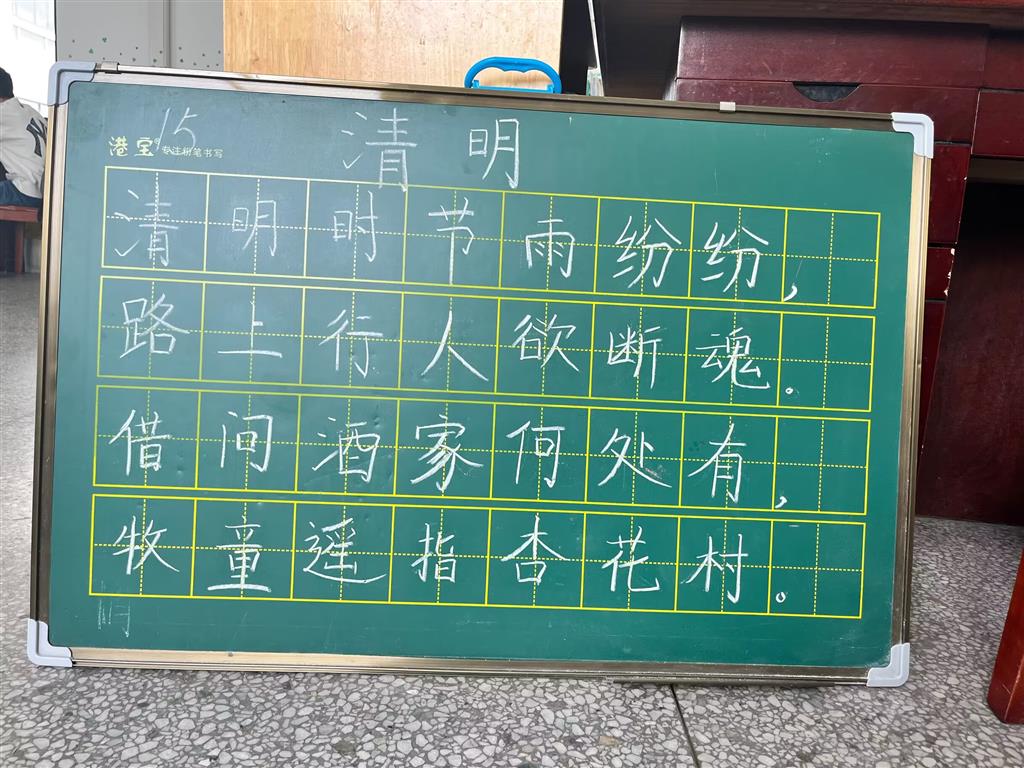 15
港宝® 专注粉笔书写
清明
清明时节雨纷纷,
路上行人欲断魂。
借间酒家何处有,
牧童遥指杏花村。
明